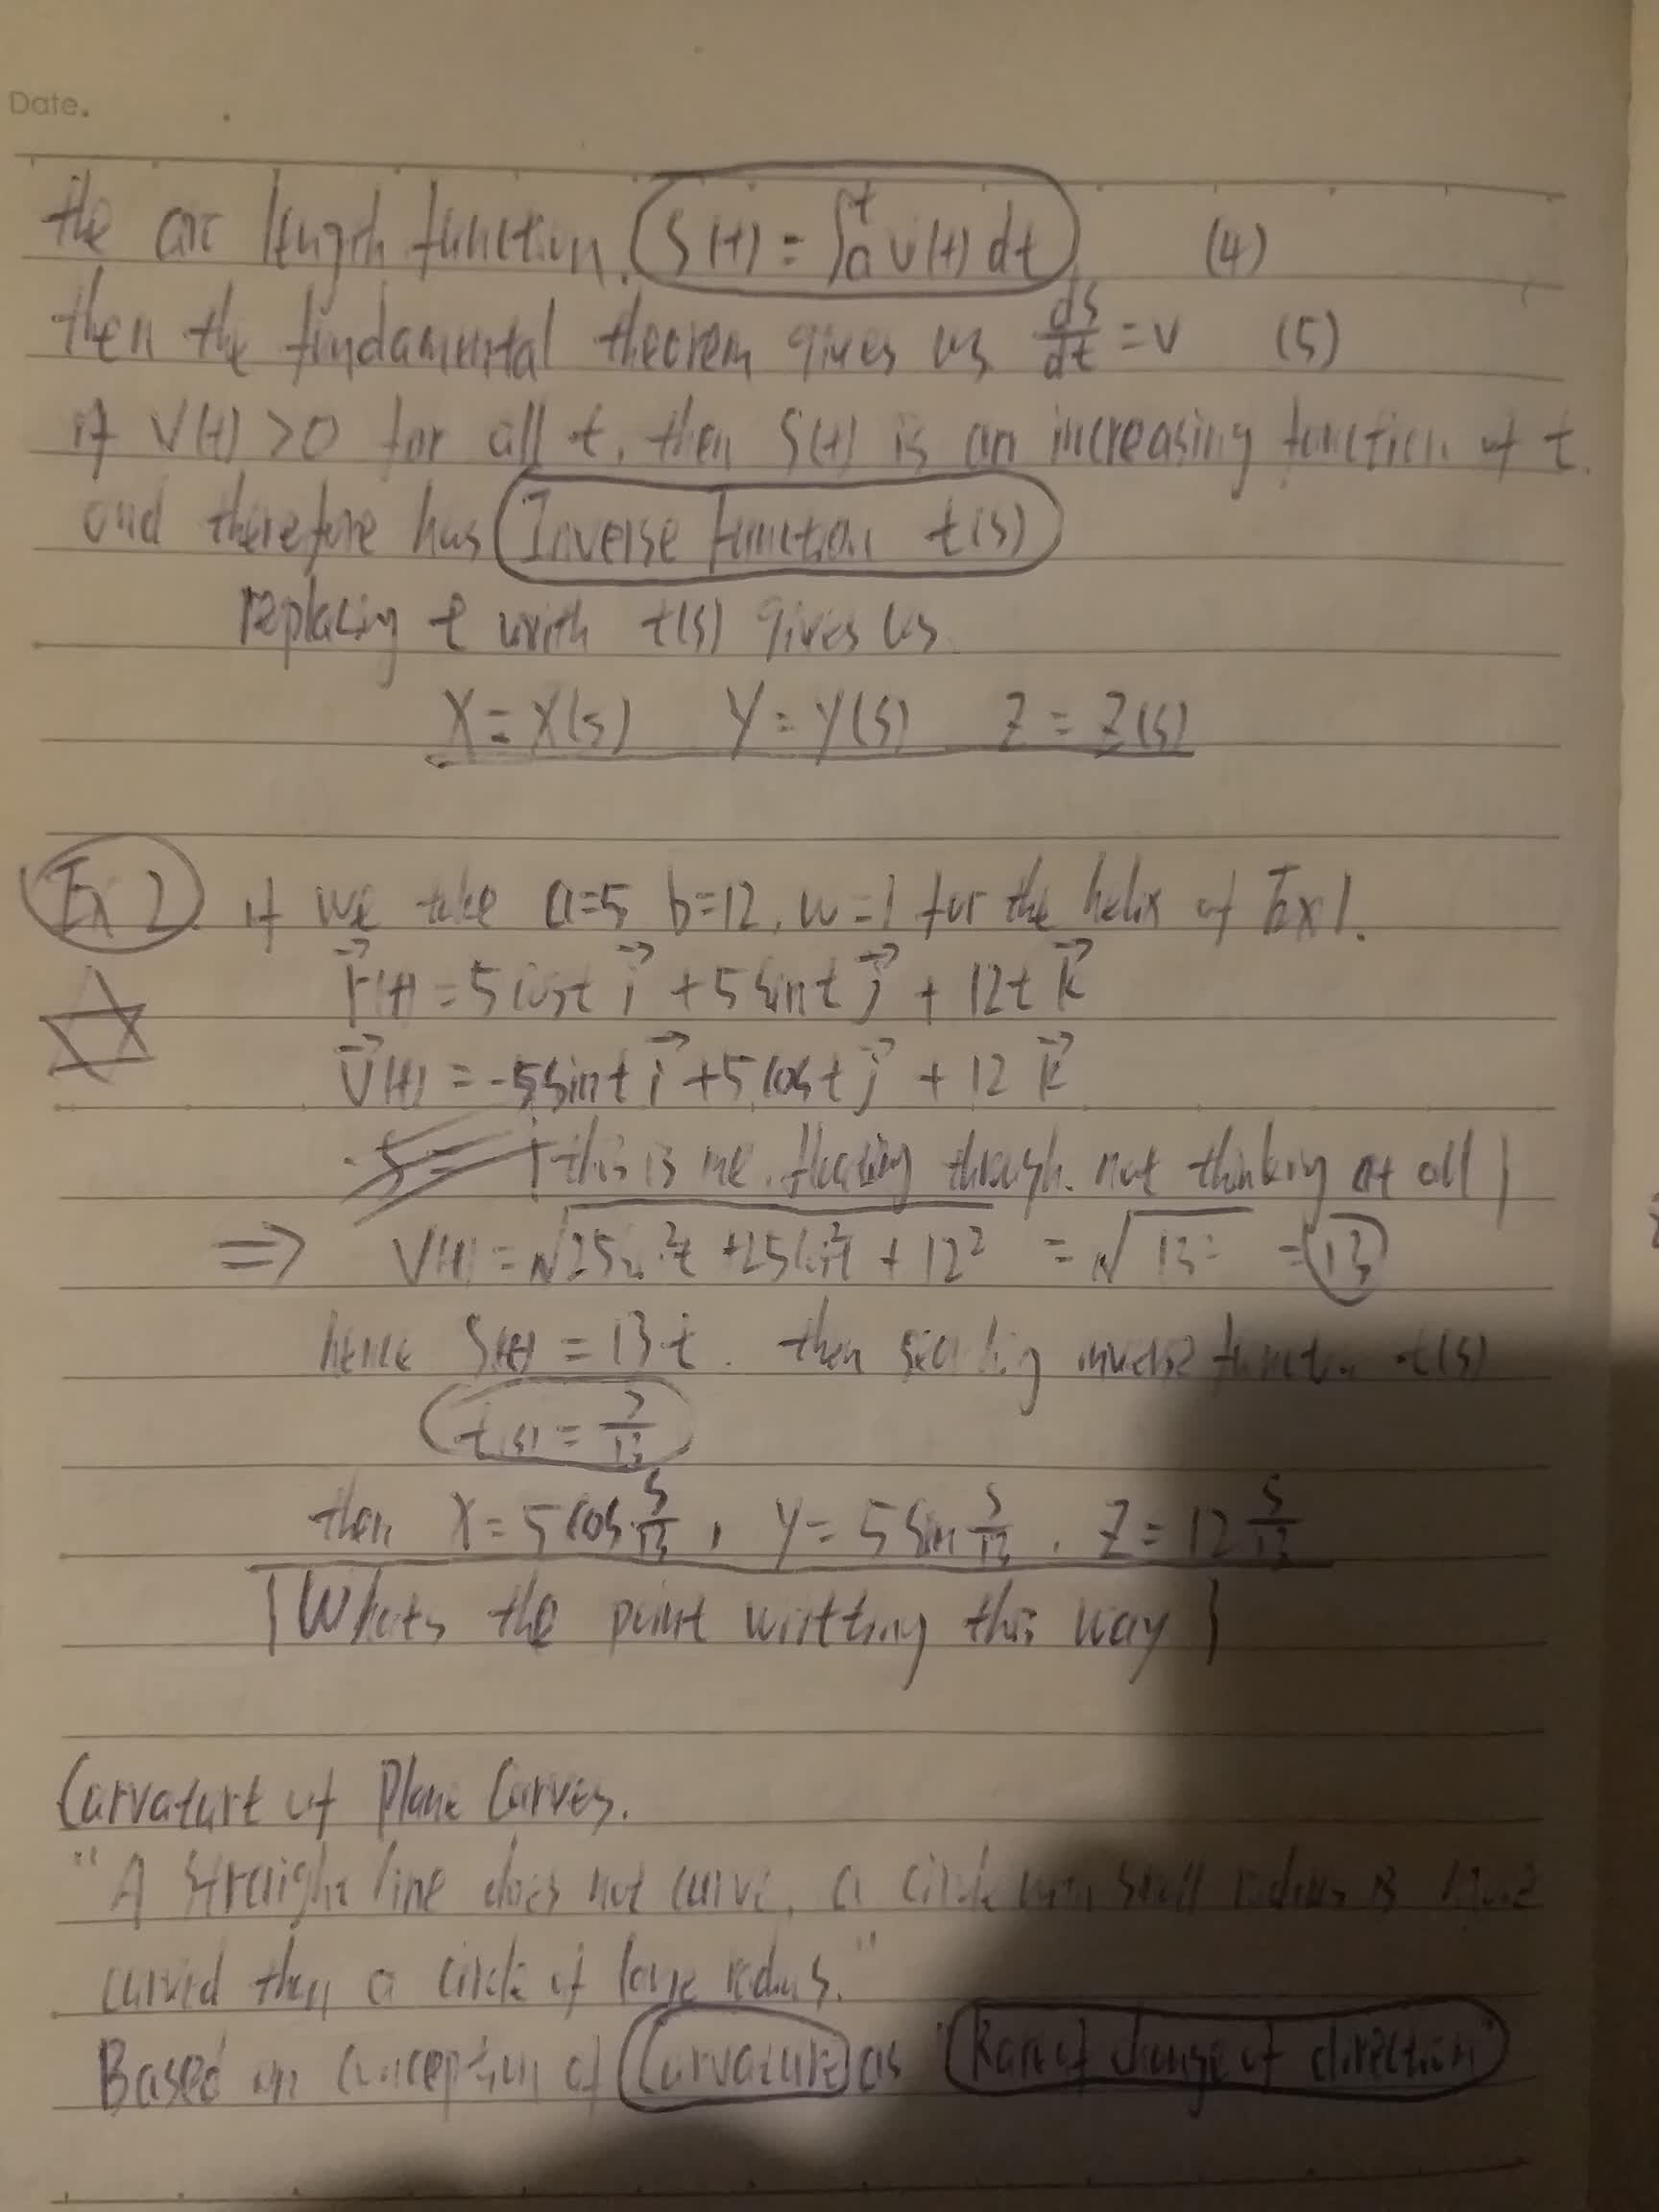 Date.
the arc length function. S(t) = ∫ₐᵗ v(t) dt (4)
then the fundamental theorem gives us ds/dt = v (5)
if v(t) > 0 for all t, then S(t) is an increasing function of t.
and therefore has Inverse function t(s)
replacing t with t(s) gives us
X = X(s) Y = Y(s) Z = Z(s)
Ex 2. if we take a=5 b=12, w=1 for the helix of Ex1.
r⃗(t) = 5 cost i⃗ + 5 sint j⃗ + 12t k⃗
v⃗(t) = -5sint i⃗ + 5 cost j⃗ + 12 k⃗
this is me. floating through. not thinking at all
⇒ V(t) = √25sin²t + 25cos²t + 12² = √13² = 13
hence S(t) = 13t. then inverse function t(s)
t(s) = s/13
then X = 5 cos s/13, Y = 5 sin s/13. Z = 12 s/13
Whats the point writting this way
Curvature of Plane Curves.
"A straight line does not curve, a circle with small radius is more
curved than a circle of large radius."
Based on conception of Curvature as "Rate of change of direction"